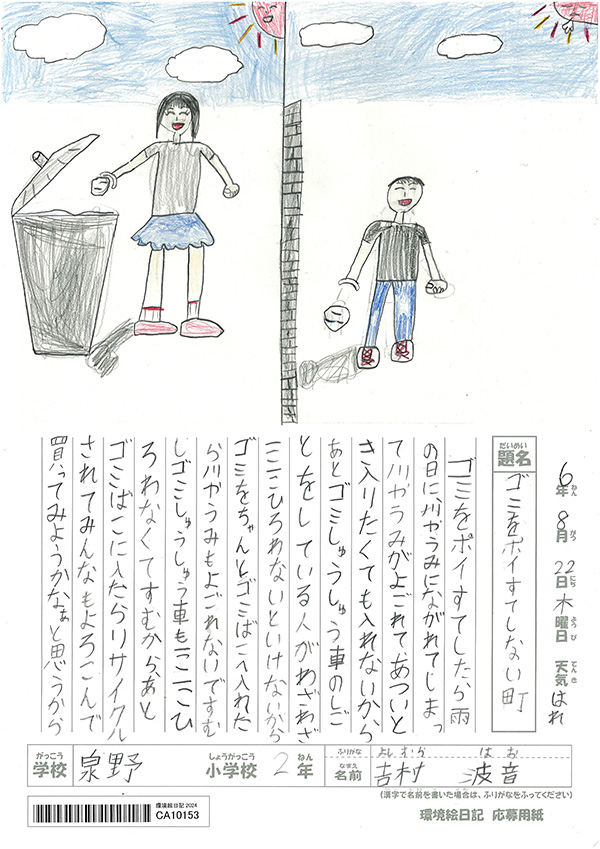 6年 8月 22日 木曜日 天気 はれ
ねん がつ にち ようび てんき
だいめい
題名 ゴミをポイすてしない町
ゴミをポイすてしたら雨
の日に、川やうみにながれてしまっ
て川やうみがよごれてあついと
き入りたくても入れないから
あとゴミしゅうしゅう車のしご
とをしている人がわざわざ
ここひろわないといけないから
ゴミをちゃんとゴミばこへ入れた
ら川やうみもよごれないですむ
しゴミしゅうしゅう車もここひ
ろわなくてすむから、あと
ゴミばこに入たらリサイクル
されてみんなもよろこんで
買ってみようかなぁと思うから
がっこう しょうがっこう ねん ふりがな よしむら はお
学校 泉野 小学校 2年 なまえ 名前 吉村 波音
(漢字で名前を書いた場合は、ふりがなをふってください)
環境絵日記 2024
CA10153
環境絵日記 応募用紙